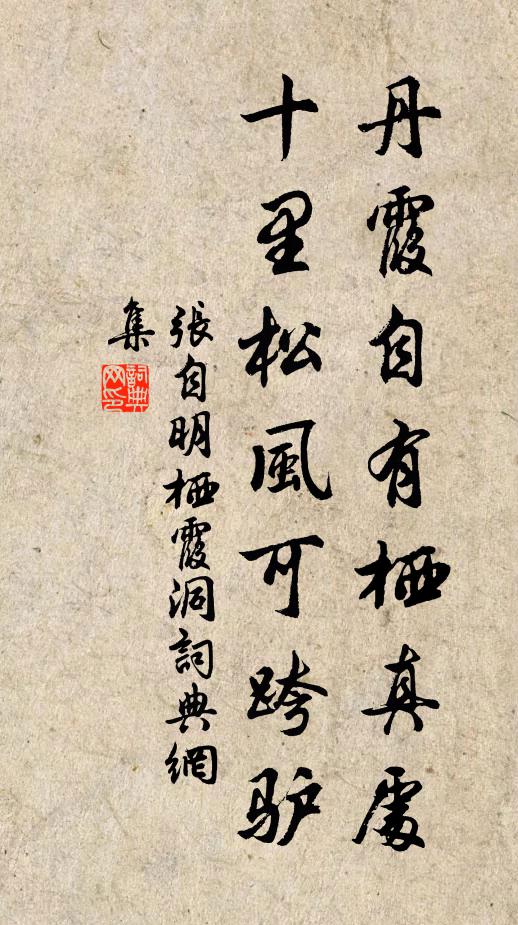 丹霞自有栖真處
十里松風可跨驴
張自明栖霞洞詞典網
集
詞典
网印